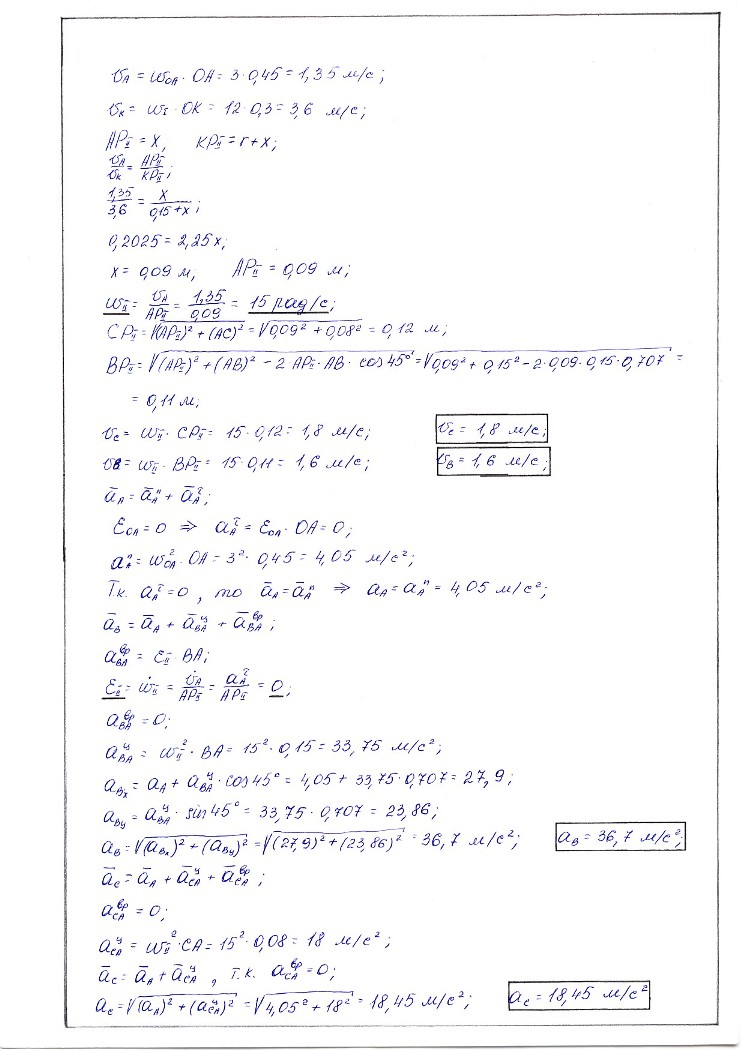 v_A = ω_OA · OA = 3 · 0,45 = 1,35 м/с;
v_K = ω_I · OK = 12 · 0,3 = 3,6 м/с;
AP_II = x, KP_II = r + x;
v_A/v_K = AP_II/KP_II;
1,35/3,6 = x/(0,15 + x);
0,2025 = 2,25x;
x = 0,09 м, AP_II = 0,09 м;
ω_II = v_A/AP_II = 1,35/0,09 = 15 рад/с;
CP_II = √((AP_II)² + (AC)²) = √(0,09² + 0,08²) = 0,12 м;
BP_II = √((AP_II)² + (AB)² - 2 · AP_II · AB · cos 45°) = √(0,09² + 0,15² - 2 · 0,09 · 0,15 · 0,707) =
= 0,11 м;
v_C = ω_II · CP_II = 15 · 0,12 = 1,8 м/с; v_C = 1,8 м/с;
v_B = ω_II · BP_II = 15 · 0,11 = 1,6 м/с; v_B = 1,6 м/с;
ā_A = ā_A^n + ā_A^τ;
ε_OA = 0 ⇒ a_A^τ = ε_OA · OA = 0;
a_A^n = ω_OA² · OA = 3² · 0,45 = 4,05 м/с²;
Т.к. a_A^τ = 0, то ā_A = ā_A^n ⇒ a_A = a_A^n = 4,05 м/с²;
ā_B = ā_A + ā_BA^ц + ā_BA^вр;
a_BA^вр = ε_II · BA;
ε_II = ω̇_II = v̇_A/AP_II = a_A^τ/AP_II = 0;
a_BA^вр = 0;
a_BA^ц = ω_II² · BA = 15² · 0,15 = 33,75 м/с²;
a_Bx = a_A + a_BA^ц · cos 45° = 4,05 + 33,75 · 0,707 = 27,9;
a_By = a_BA^ц · sin 45° = 33,75 · 0,707 = 23,86;
a_B = √((a_Bx)² + (a_By)²) = √((27,9)² + (23,86)²) = 36,7 м/с²; a_B = 36,7 м/с²;
ā_C = ā_A + ā_CA^ц + ā_CA^вр;
a_CA^вр = 0;
a_CA^ц = ω_II² · CA = 15² · 0,08 = 18 м/с²;
ā_C = ā_A + ā_CA^ц, т.к. a_CA^вр = 0;
a_C = √((a_A)² + (a_CA^ц)²) = √(4,05² + 18²) = 18,45 м/с²; a_C = 18,45 м/с²